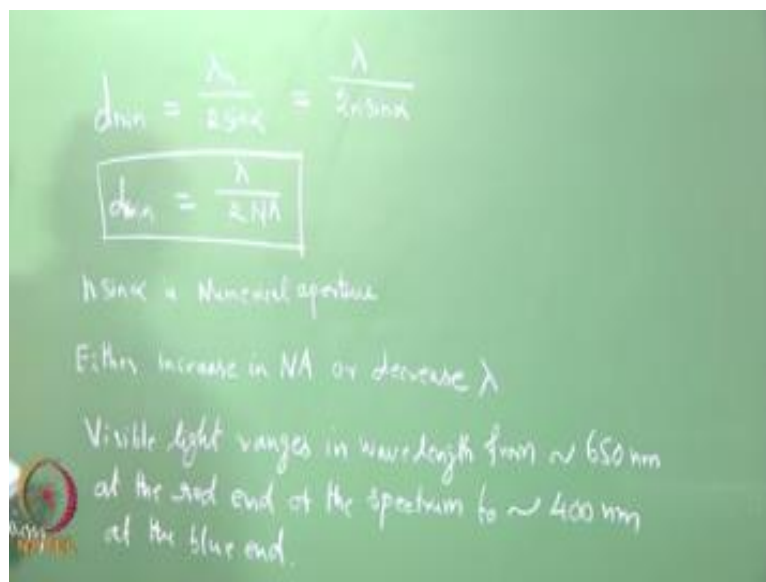 dmin = λn / 2 sinα = λ / 2n sinα
dmin = λ / 2 NA
n sinα is Numerical aperture
Either increase in NA or decrease λ
Visible light ranges in wavelength from ~ 650 nm
at the red end of the spectrum to ~ 400 nm
at the blue end.